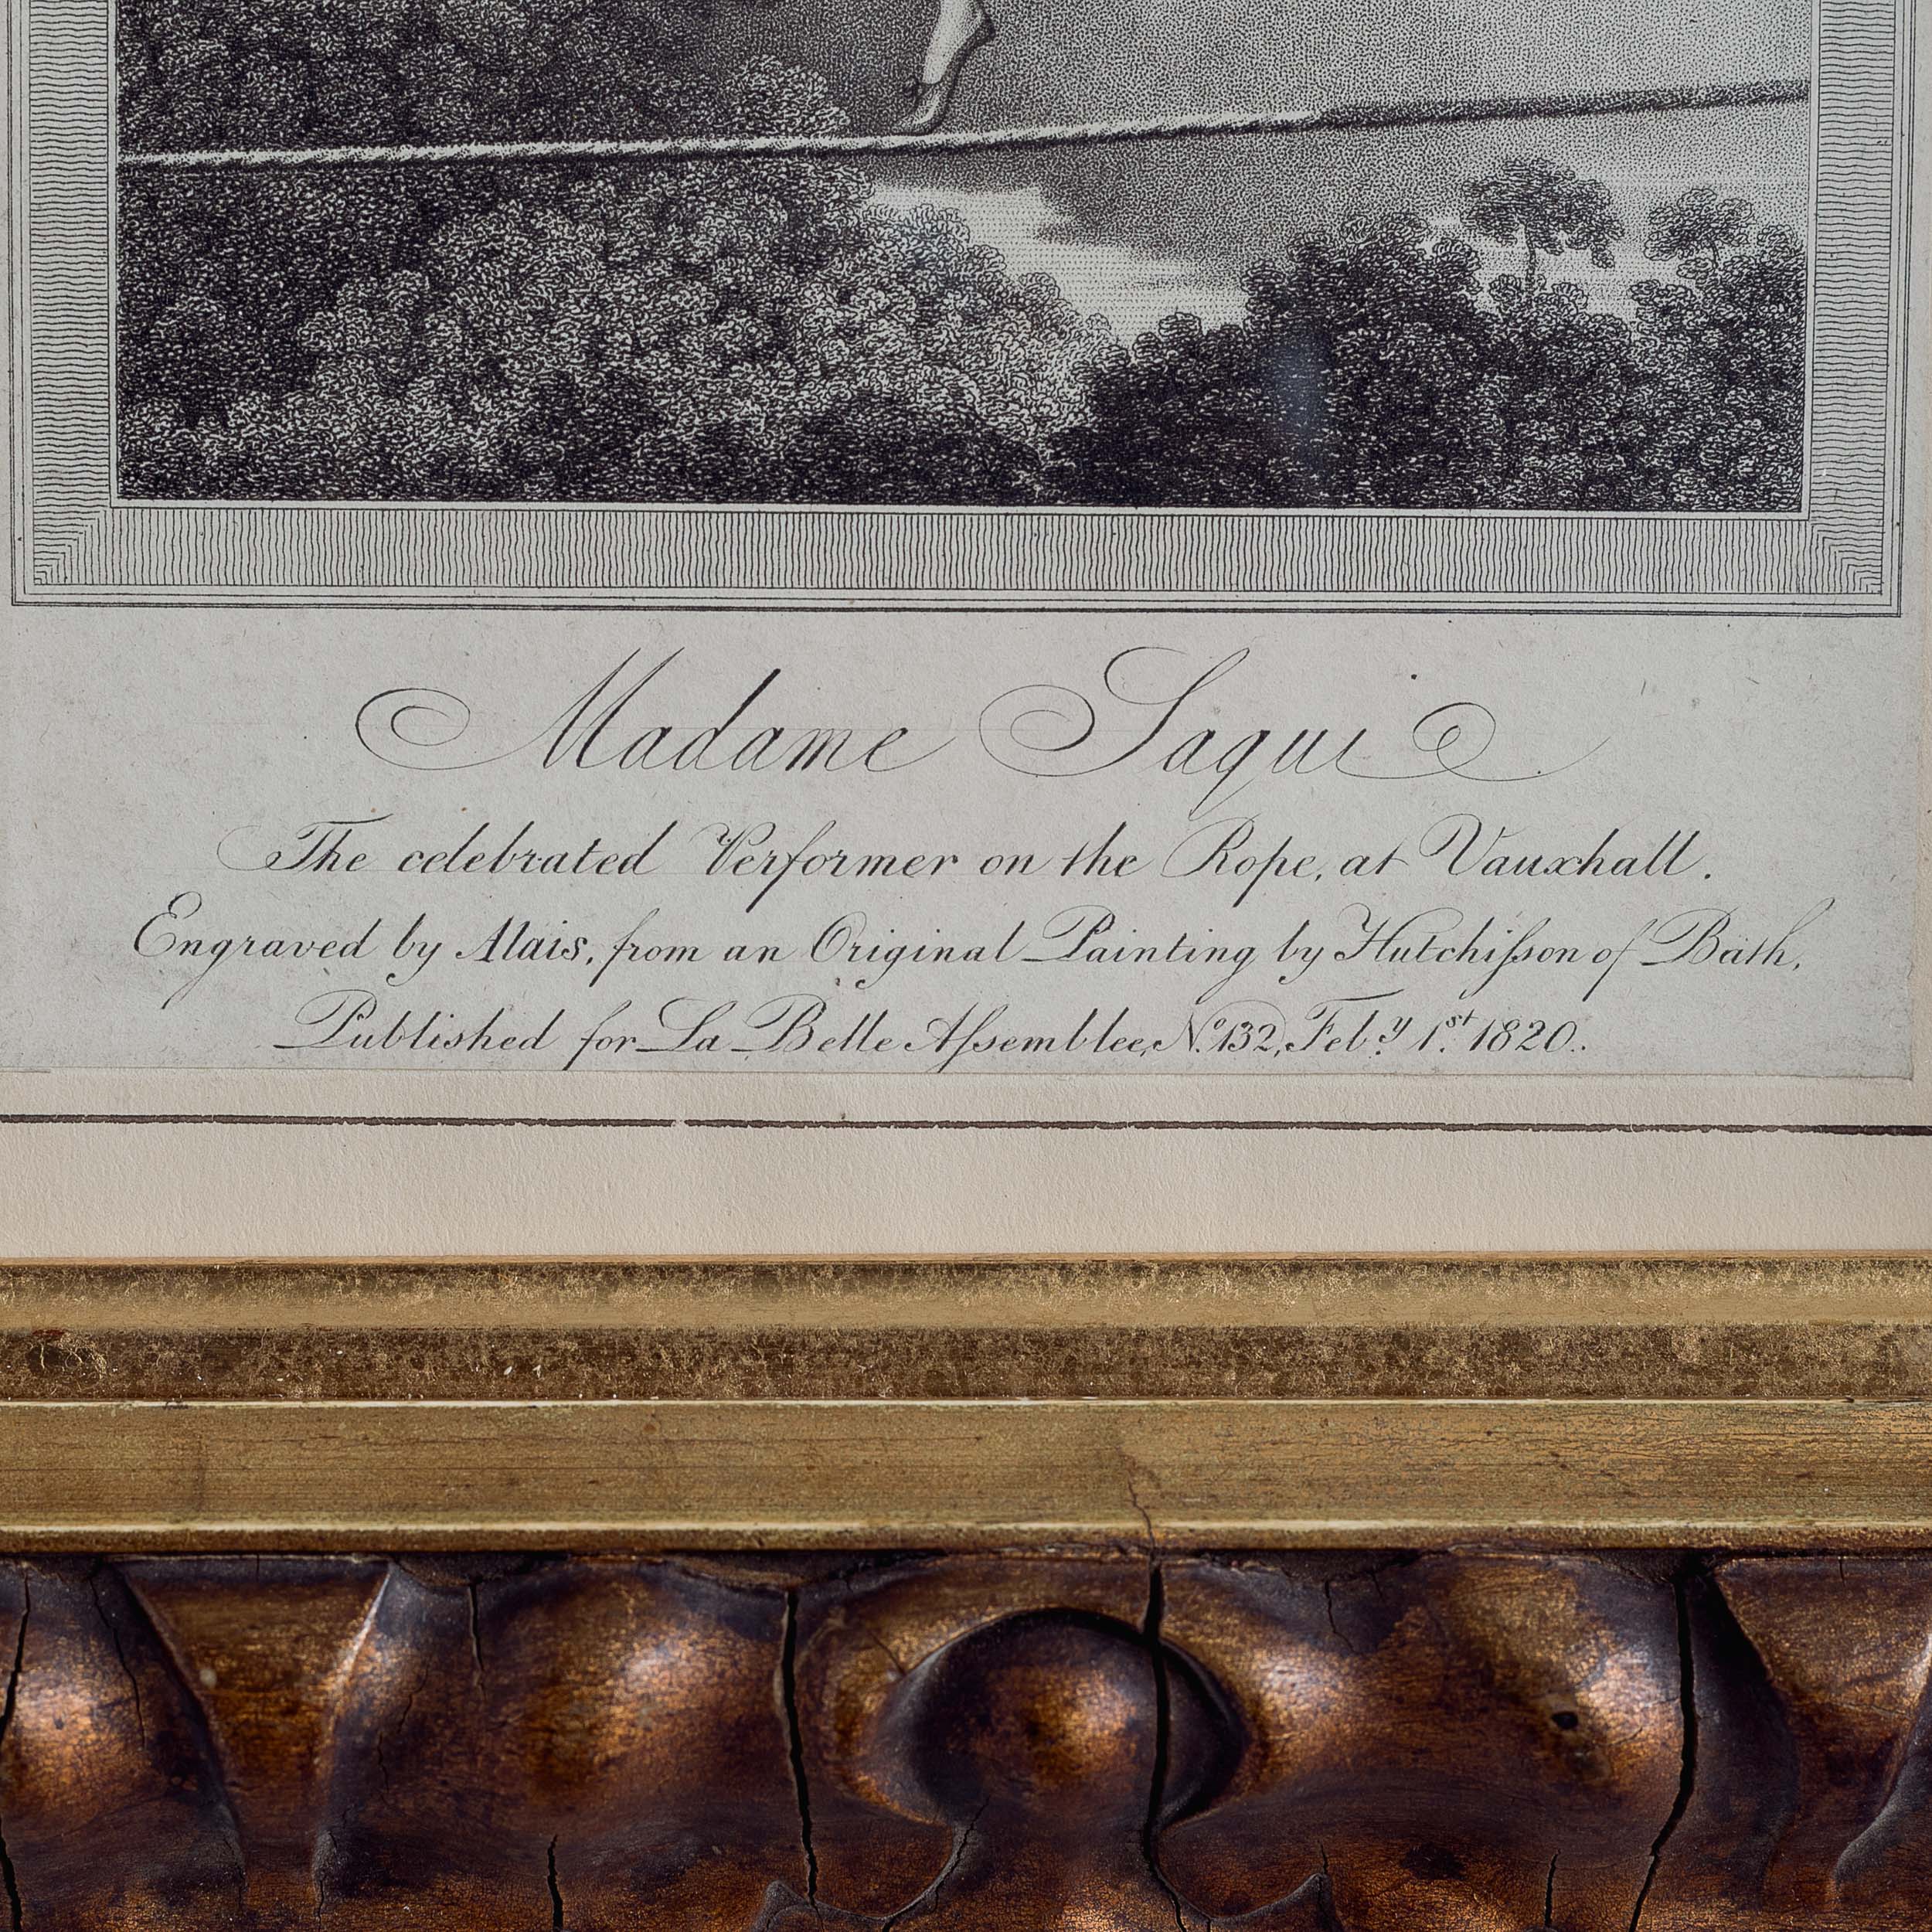 Madame Saqui
The celebrated Performer on the Rope, at Vauxhall.
Engraved by Alais, from an Original Painting by Hutchiſson of Bath,
Published for La Belle Aſsemblee, No. 132, Feby. 1st. 1820.